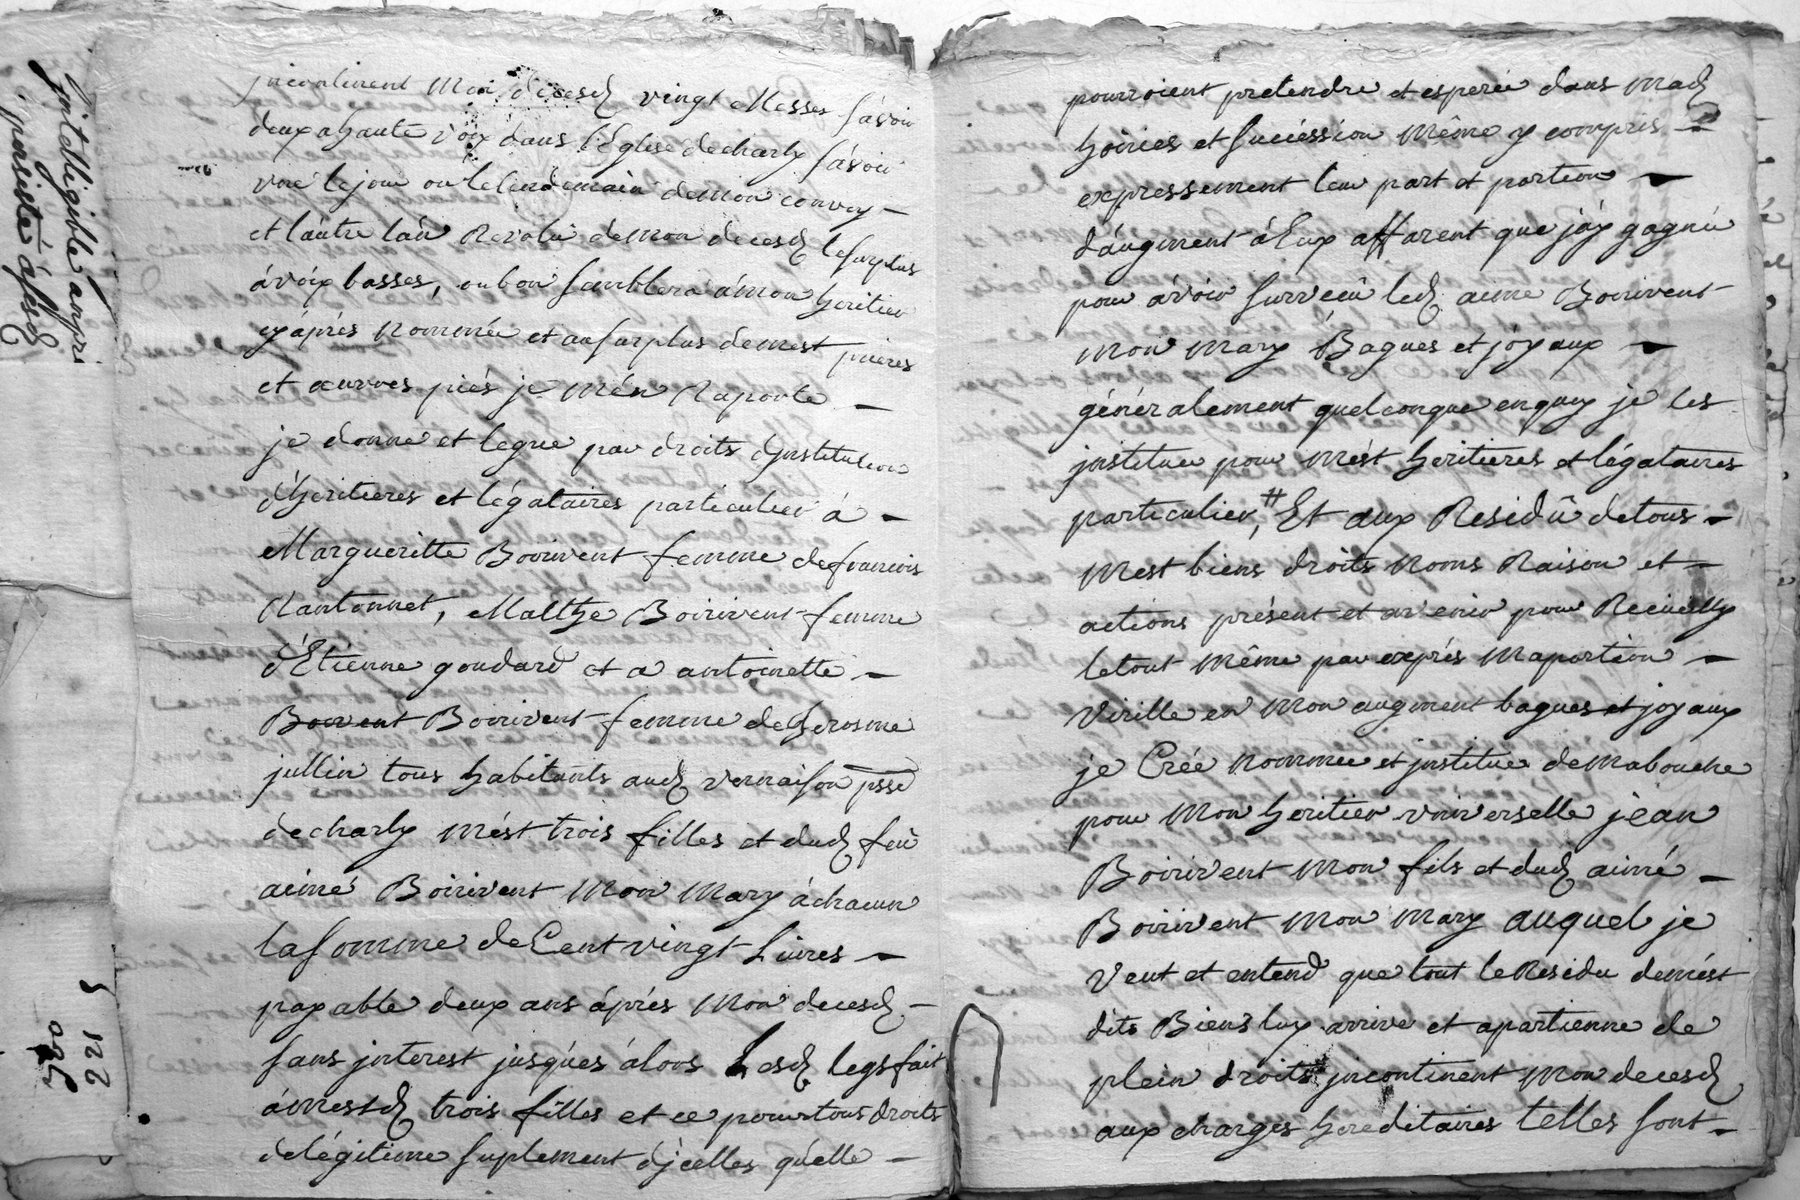 jncontinent Mon decesd vingt Messes savoir
deux a haute voix dans l'Eglise decharly savoir
une le jour ou le lendemain demon convoy —
et l'autre l'an Revolu demon decesd lesurplus
à voix basses, ou bon semblera à mon heritier
cy après nommée et au surplus demest prieres
et œuvres piés je m'én Raporte —
je donne et legue par droits d'jnstitution
d'heritieres et légataires particulier à —
Margueritte Boirivent femme defrancois
Rantonnet, Malthe Boirivent femme
d'Etienne goudard et a antoinette —
Boirivent femme de herosme
jullin tous habitants aud vernaison psse
decharly mést trois filles et dud feu
aimé Boirivent Mon Mary à chacun
lasomme de Cent vingt Livres —
payable deux ans àprés Mon decesd —
sans jnterest jusqu'es àlors Lesd legs fait
àmestd trois filles et ce pour tous droits
delégitime suplement d'jcelles qu'elle —
jntelligible après
persisté à lesd
5 122
pourroient pretendre et esperée dans mad
hoiries et sucéssion Même y compris —
expressement leur part et portion —
d'augment à Eux afférent que j'ay gagnée
pour avoir survecû led aime Boirivent
mon Mary Bagues et joyaux —
généralement quelconque enquoy je les
jnstituee pour mést heritieres et légataires
particulier,# Et aux Residû detous —
mest biens droits noms Raison et —
actions présent et avenir pour Recüeilly
letout même par exprés maportion —
Virille en mon augment bagues et joyaux
je Créé nommée et jnstitue demabouche
pour mon heritier universelle jean
Boirivent mon fils et dud aimé —
Boirivent mon Mary auquel je
Veut et entend que tout le Residu demést
dits Biens luy arrive et apartienne de
plein droits jncontinent mon decesd
àux charges hereditaires telles sont —